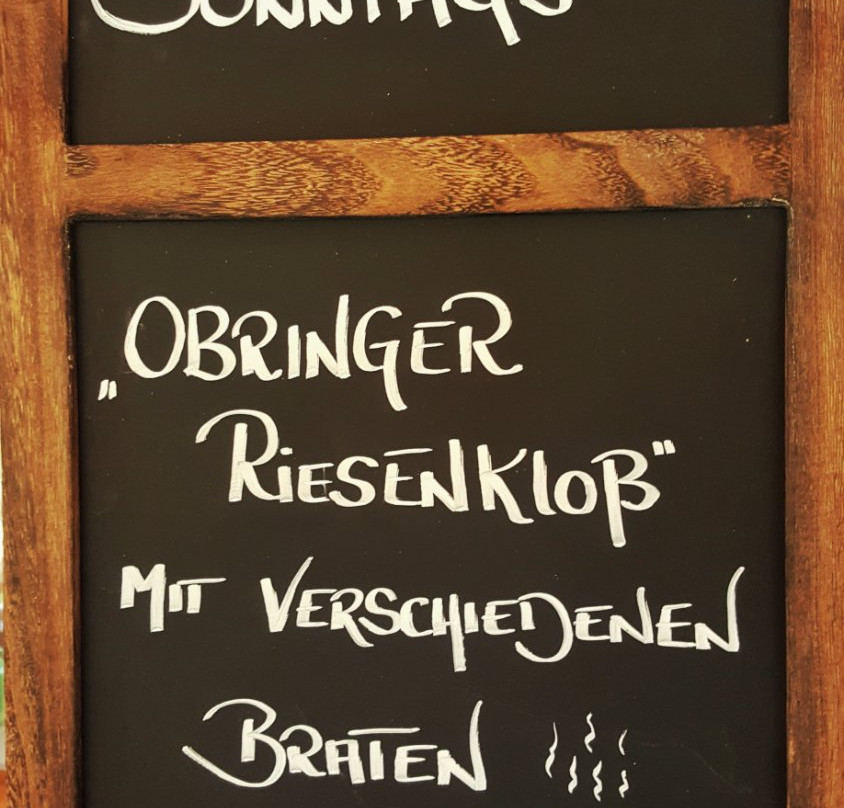 SONNTAGS
„OBRINGER
RIESENKLOß"
MIT VERSCHIEDENEN
BRATEN